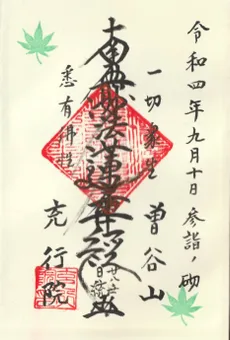 令和四年九月十日 参詣ノ砌
一切衆生
曽谷山
南無妙法蓮華経
悉有佛性
充行院